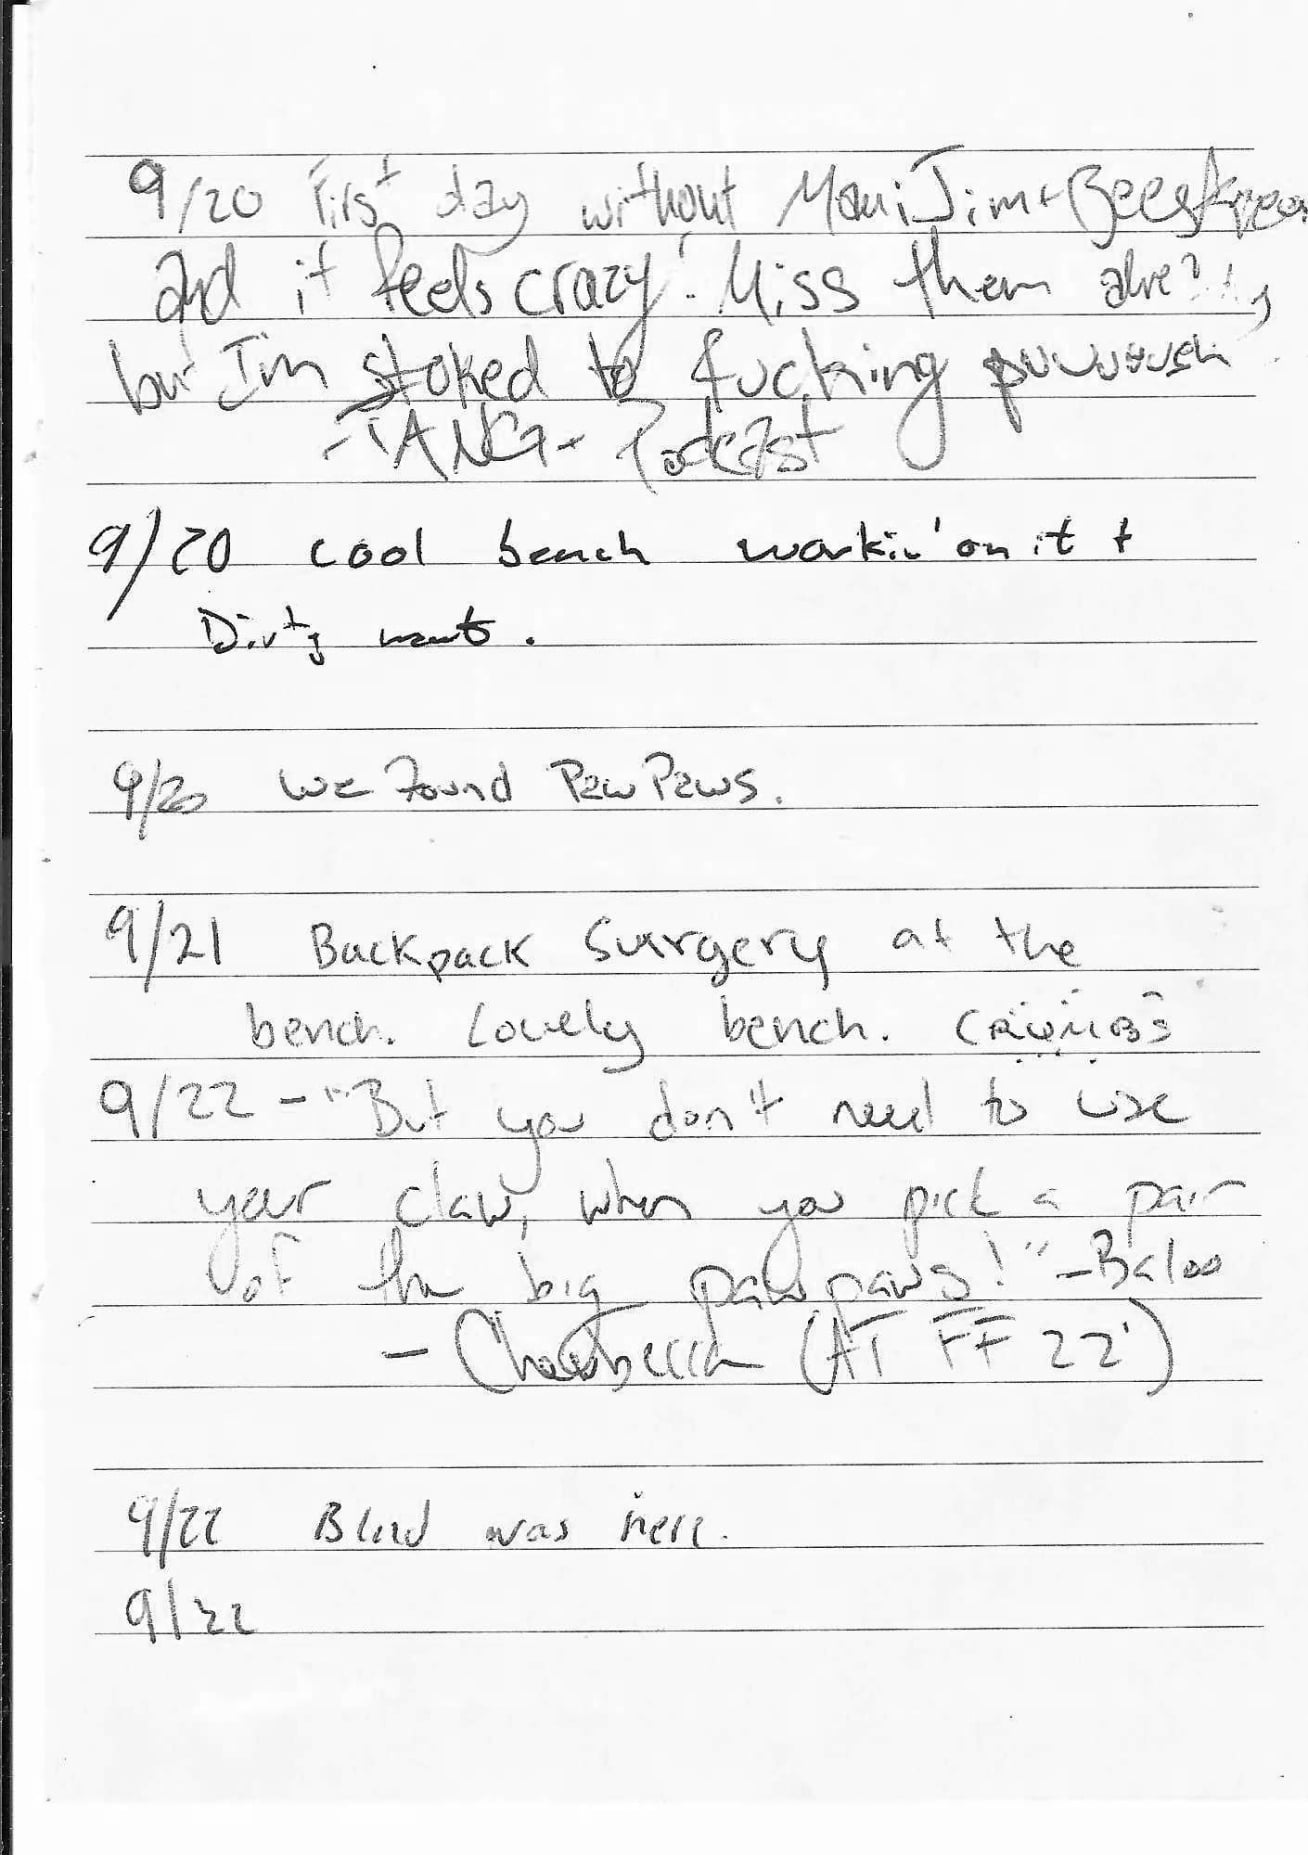 9/20 First day without Maui Jim +
and it feels crazy! Miss them already,
but I'm stoked to fucking puuuuush
-TANG- Podcast
9/20 cool bench workin' on it +
Dirty
9/20 We Found PawPaws.
9/21 Backpack Surgery at the
bench. Lovely bench. CRUMBS
9/22 - "But you don't need to use
your claw, when you pick a pair
of the big paw paws!" - Baloo
- (AT FF 22')
9/22 was here.
9/22